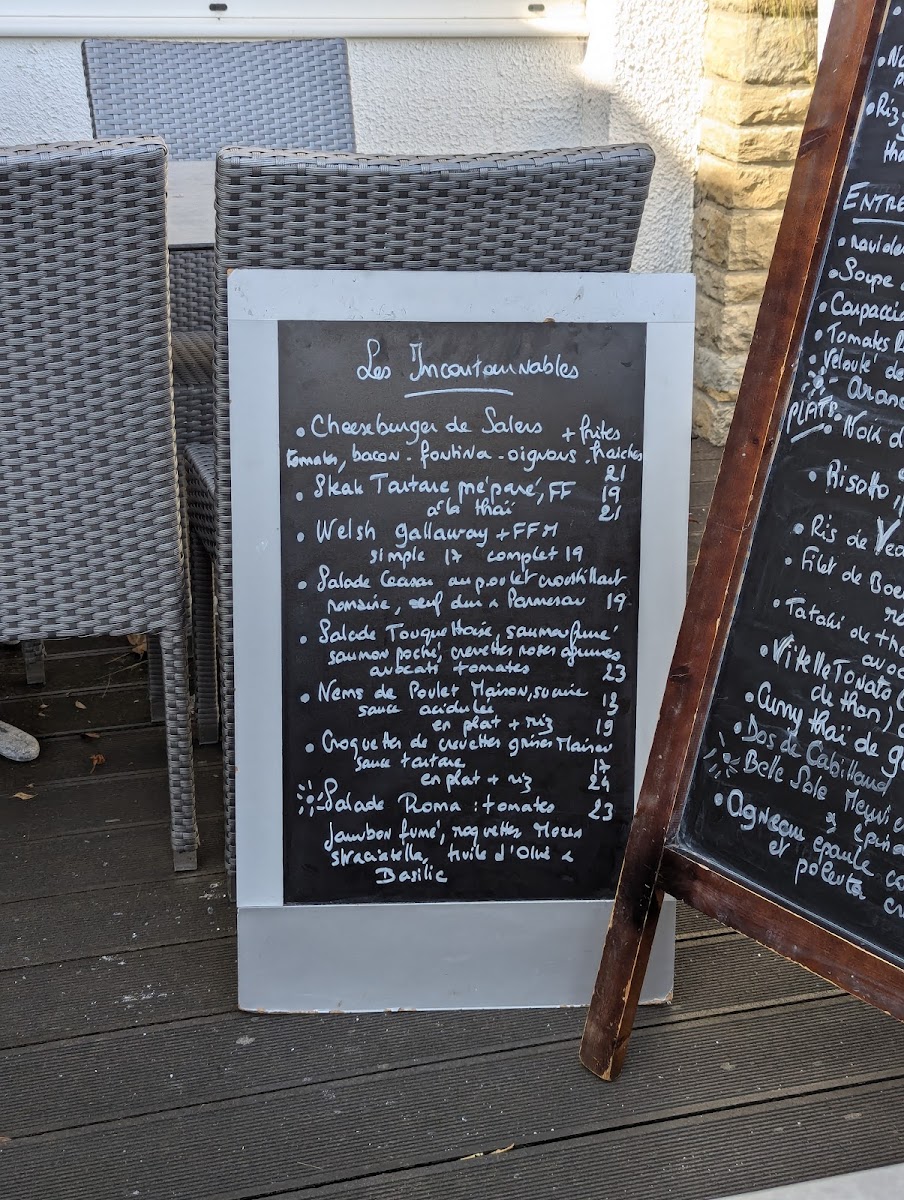 Les Incontournables
• Cheeseburger de Salers + frites
tomates, bacon - fontina - oignons - fraiches
21
• Steak Tartare préparé, FF 19
à la thaï 21
• Welsh gallaway + FFM
simple 17 complet 19
• Salade Ceasar au poulet croustillant
romaine, œuf dur & Parmesan 19
• Salade Touquettoise, saumon fumé
saumon poché, crevettes roses agrumes
avocats tomates 23
• Nems de Poulet Maison, sucrine
sauce acidulée 13
en plat + riz 19
• Croquettes de crevettes grises Maison
sauce tartare 17
en plat + riz 24
Salade Roma : tomates 23
jambon fumé, roquettes
straciatella, huile d'Olive &
Basilic
• Riz
tha
ENTRE
• raviole
• Soupe
• Carpaccio
• Tomates
• Velouté de
PLATS
• Noix d
• Risotto
• Ris de Vea
• Filet de Boe
• Tataki de tho
avoc
• Vitello Tonato
de thon)
• Curry thaï de ga
• Dos de Cabillaud
Belle Sole Meuni
• Agneau
épaule co
et polenta